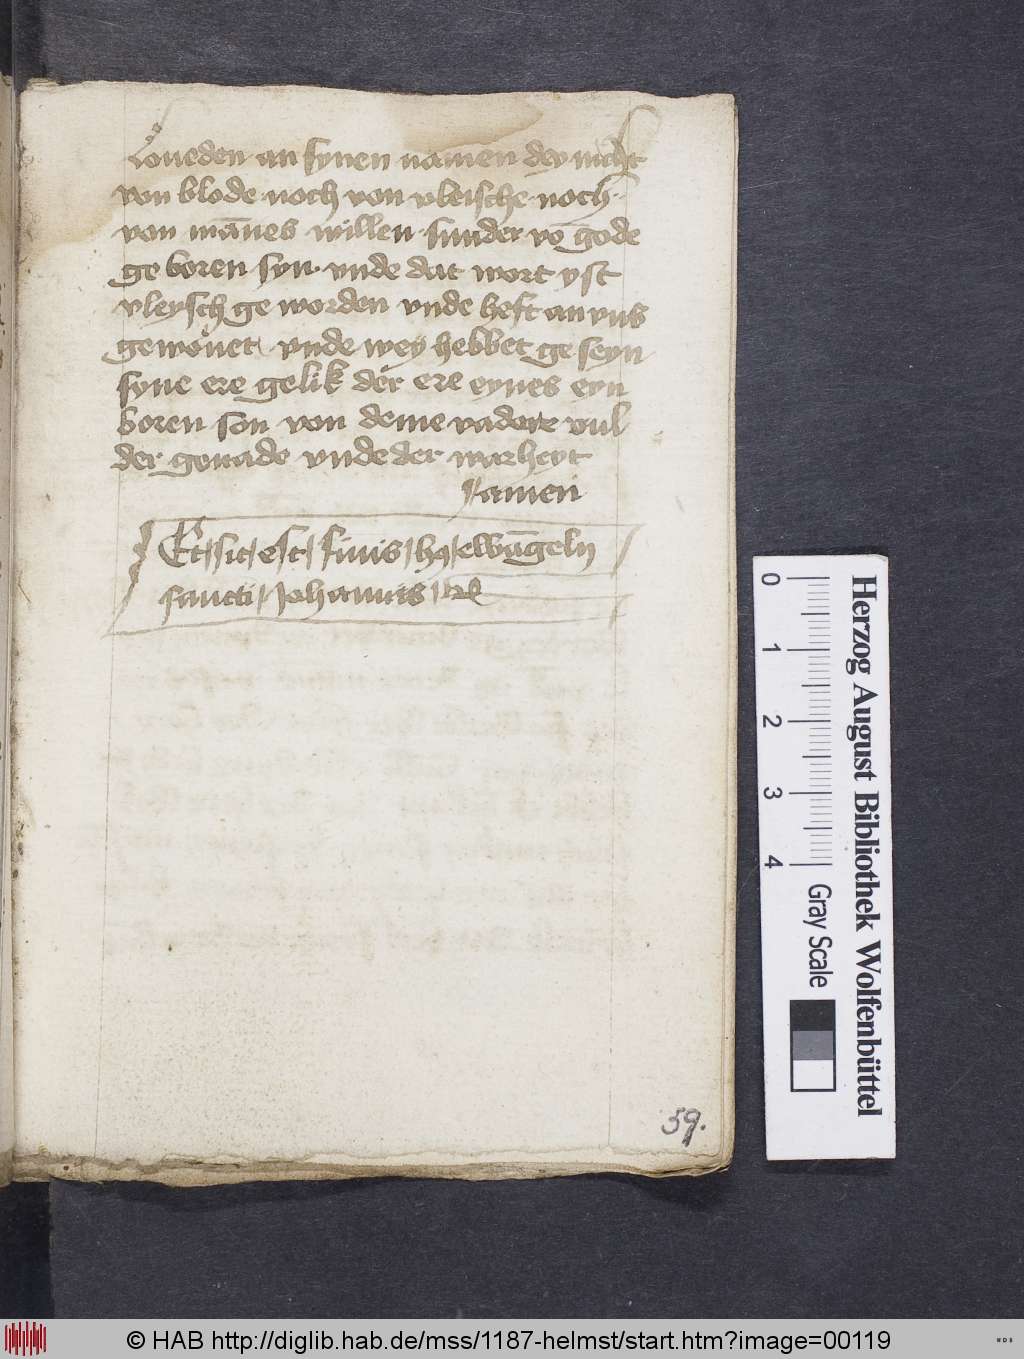 loueden an synen namen dey nicht
von blode noch von vleische noch
von mānes willen sunder vō gode
ge boren syn vnde dat wort yst
vleysch ge worden vnde heft an vns
gewonet vnde wey hebbet ge seyn
syne ere gelik der ere eynes eyn
boren son von deme vadere vul
der genade vnde der warheyt
amen
Et sic est finis hq ewāgelij
sancti Johannis
Herzog August Bibliothek Wolfenbüttel
0 1 2 3 4 Gray Scale
59.
© HAB http://diglib.hab.de/mss/1187-helmst/start.htm?image=00119
WDB